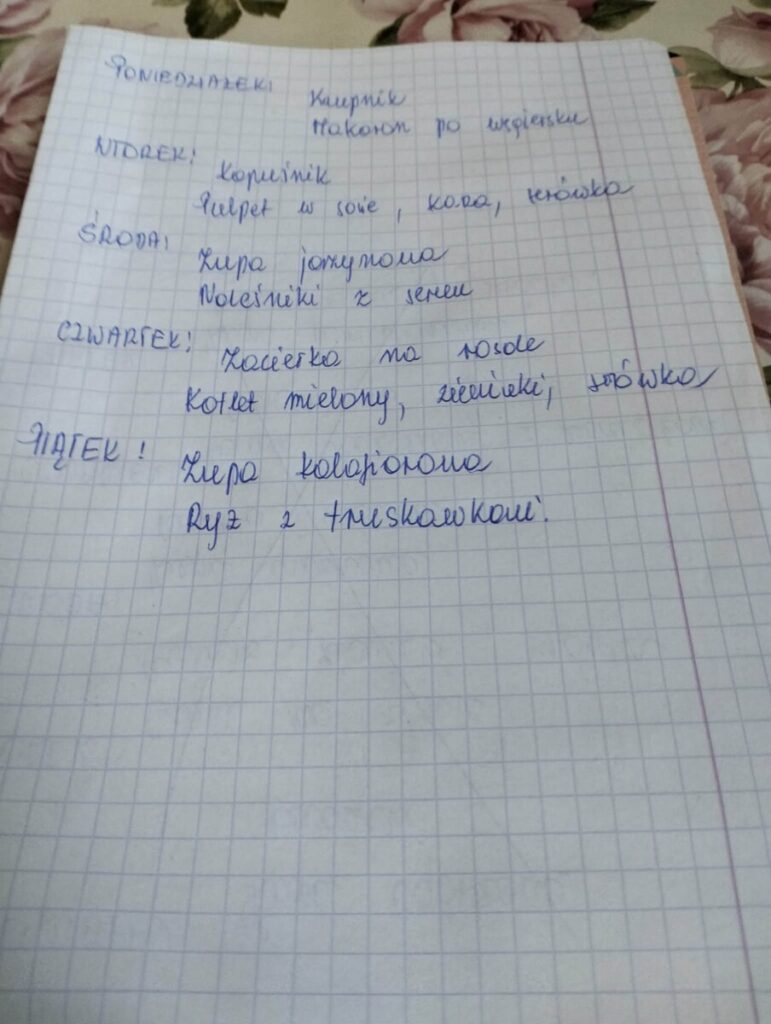 PONIEDZIAŁEK:
Krupnik
Makaron po węgiersku
WTOREK:
Kapuśnik
Pulpet w sosie, kasza, surówka
ŚRODA:
Zupa jarzynowa
Naleśniki z serem
CZWARTEK:
Zacierka na rosole
Kotlet mielony, ziemniaki, surówka
PIĄTEK:
Zupa kalafiorowa
Ryż z truskawkami.